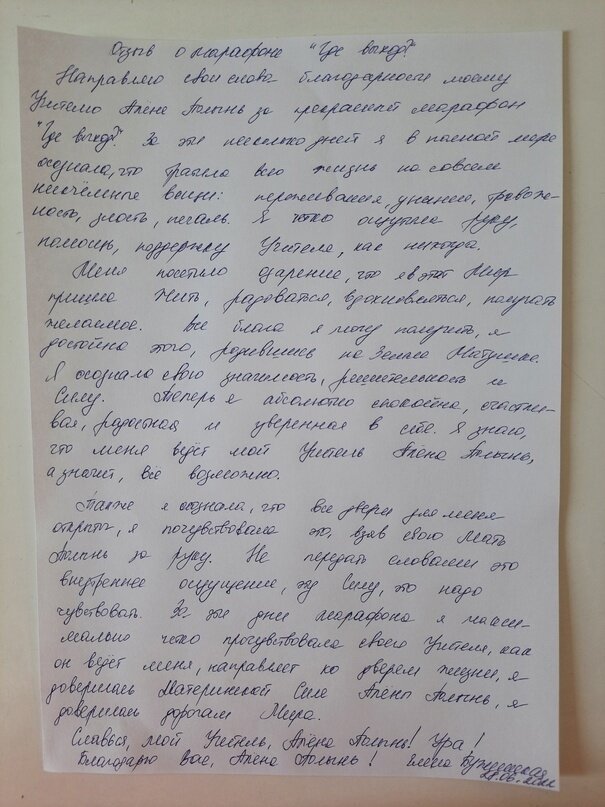 Отзыв о марафоне "Где выход?"
Направляю свои слова благодарности моему
Учителю Алёне Полынь за прекрасный марафон
"Где выход?". За эти несколько дней я в полной мере
осознала, что тратила всю жизнь на совсем
никчёмные вещи: переживания, уныние, тревож-
ность, злость, печаль. Я чётко ощутила руку,
помощь, поддержку Учителя, как никогда.
Меня посетило озарение, что я в этот Мир
пришла Жить, радоваться, вдохновляться, получать
желаемое. Все блага я могу получить, я
достойна этого, родившись на Земле Матушке.
Я осознала свою значимость, решительность и
Силу. Теперь я абсолютно спокойна, счастли-
вая, радостная и уверенная в себе. Я знаю,
что меня ведёт мой Учитель Алёна Полынь,
а значит, всё возможно.
Также я осознала, что все двери для меня
открыты, я почувствовала это, взяв свою Мать
Полынь за руку. Не передать словами это
внутреннее ощущение, эту Силу, это надо
чувствовать. За эти дни марафона я макси-
мально чётко прочувствовала своего Учителя, как
он ведёт меня, направляет ко дверям жизни, я
доверилась Материнской Силе Алёны Полынь, я
доверилась дорогам Мира.
Славься, мой Учитель, Алёна Полынь! Ура!
Благодарю Вас, Алёна Полынь! Елена